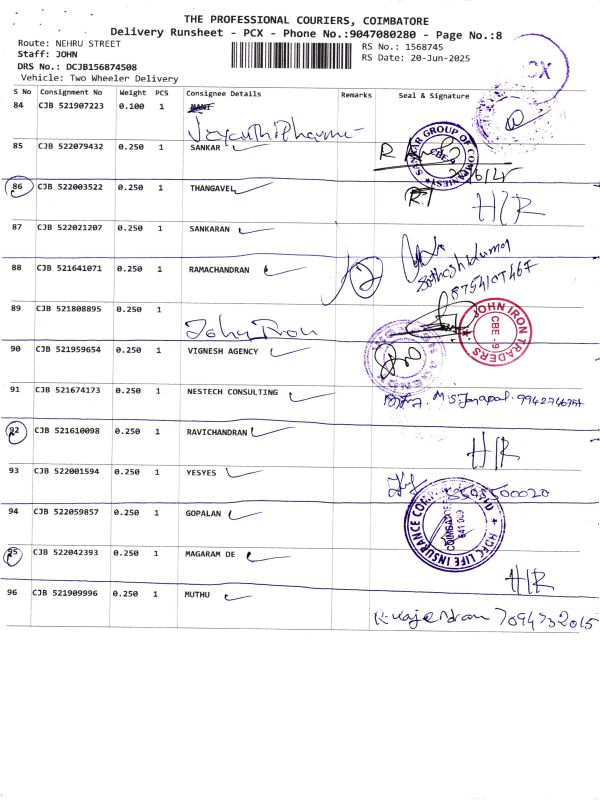 THE PROFESSIONAL COURIERS, COIMBATORE
Delivery Runsheet - PCX - Phone No.:9047080280 - Page No.:8
Route: NEHRU STREET
RS No.: 1568745
Staff: JOHN
RS Date: 20-Jun-2025
DRS No.: DCJB156874508
Vehicle: Two Wheeler Delivery
CX
S No Consignment No Weight PCS Consignee Details Remarks Seal & Signature
84 CJB 521907223 0.100 1
85 CJB 522079432 0.250 1 SANKAR
SANKAR GROUP OF COMPANIES CBE-9
86 CJB 522003522 0.250 1 THANGAVEL H/R
87 CJB 522021207 0.250 1 SANKARAN
88 CJB 521641071 0.250 1 RAMACHANDRAN
89 CJB 521808895 0.250 1
John Iron
JOHN IRON TRADERS CBE - 9
90 CJB 521959654 0.250 1 VIGNESH AGENCY
91 CJB 521674173 0.250 1 NESTECH CONSULTING
92 CJB 521610098 0.250 1 RAVICHANDRAN H/R
93 CJB 522001594 0.250 1 YESYES
94 CJB 522059857 0.250 1 GOPALAN
HDFC LIFE INSURANCE COMP
95 CJB 522042393 0.250 1 MAGARAM DE H/R
96 CJB 521909996 0.250 1 MUTHU
R. Rajendran 7094732015